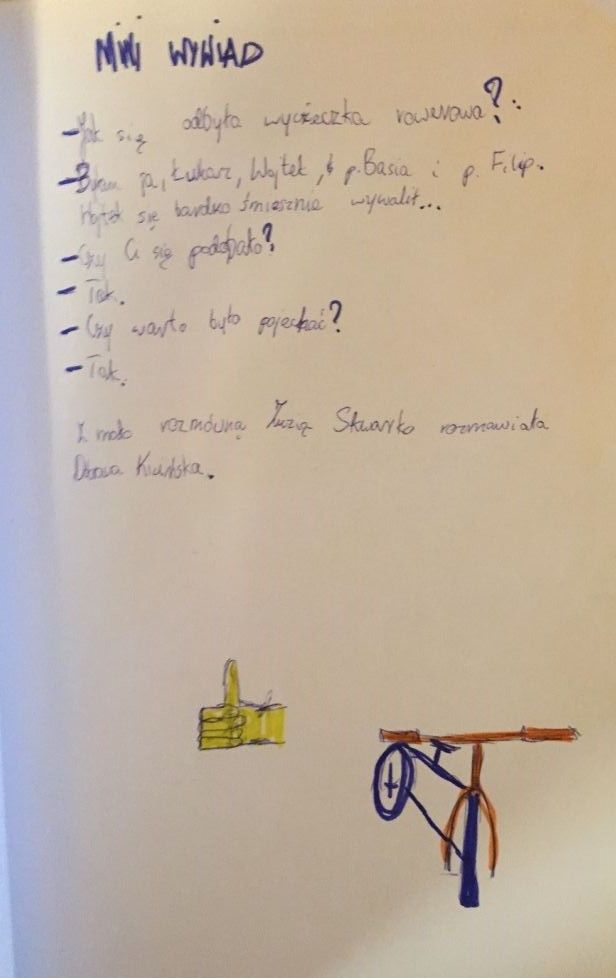 MINI WYWIAD
- Jak się odbyła wycieczka rowerowa?
- Byłam ja, Łukasz, Wojtek, p. Basia i p. Filip.
Wojtek się bardzo śmiesznie wywalił...
- Czy Ci się podobało?
- Tak.
- Czy warto było pojechać?
- Tak.
Z mało rozmówną Zuzią Skwarko rozmawiała
Kicińska.